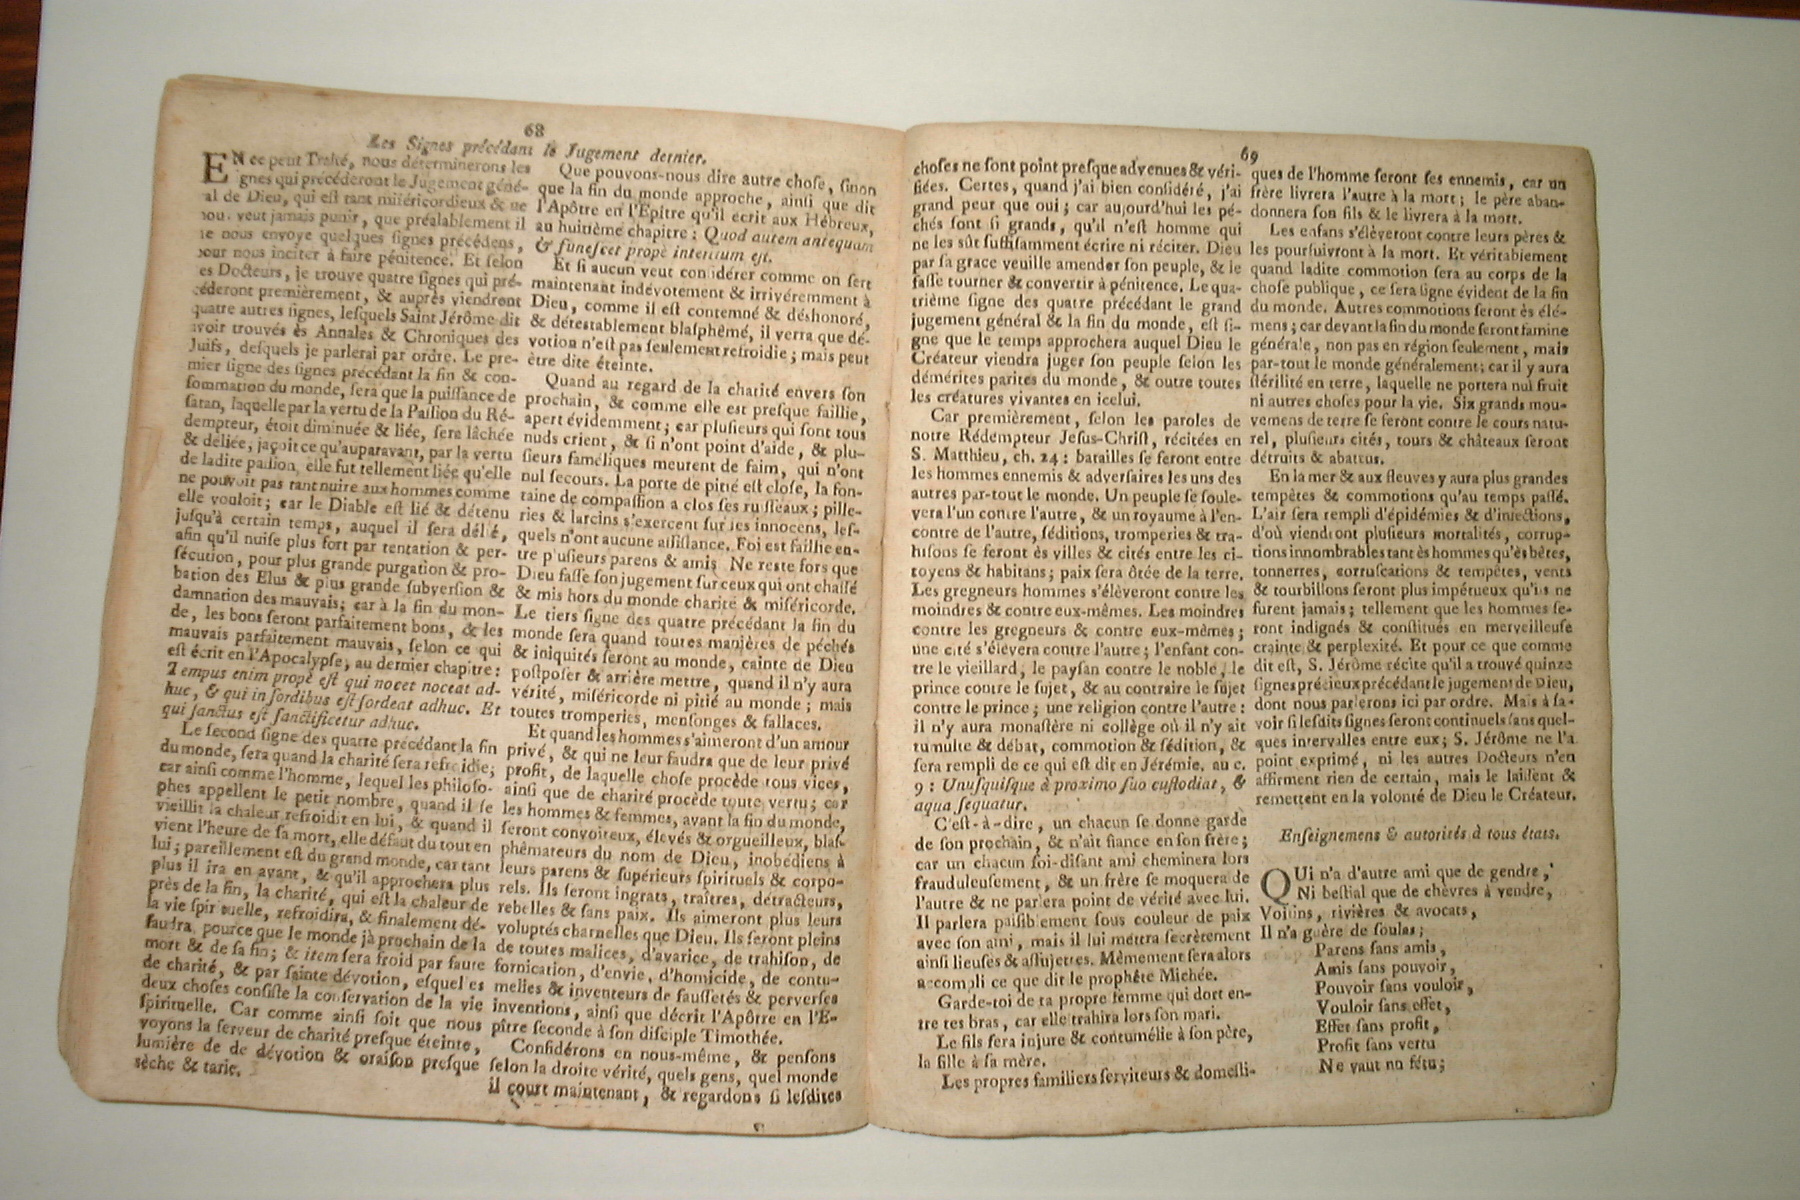 68
Les Signes précédant le Jugement dernier.
EN ce petit Traité, nous déterminerons les
ſignes qui précéderont le Jugement géné-
al de Dieu, qui eſt tant miſéricordieux & ne
nous veut jamais punir, que préalablement il
ne nous envoye quelques ſignes précédens,
pour nous inciter à faire pénitence. Et ſelon
es Docteurs, je trouve quatre ſignes qui pré-
céderont premièrement, & auprès viendront
quatre autres ſignes, leſquels Saint Jérôme dit
avoir trouvés ès Annales & Chroniques des
Juifs, deſquels je parlerai par ordre. Le pre-
mier ſigne des ſignes précédant la fin & con-
ſommation du monde, ſera que la puiſſance de
ſatan, laquelle par la vertu de la Paſſion du Ré-
dempteur, étoit diminuée & liée, ſera lâchée
& déliée; jaçoit ce qu'auparavant, par la vertu
de ladite paſſion, elle fut tellement liée qu'elle
ne pouvoit pas tant nuire aux hommes comme
elle vouloit; car le Diable eſt lié & détenu
juſqu'à certain temps, auquel il ſera délié,
afin qu'il nuiſe plus fort par tentation & per-
ſécution, pour plus grande purgation & pro-
bation des Elus & plus grande ſubverſion &
damnation des mauvais; car à la fin du mon-
de, les bons ſeront parfaitement bons, & les
mauvais parfaitement mauvais, ſelon ce qui
eſt écrit en l'Apocalypſe, au dernier chapitre:
Tempus enim propè eſt qui nocet noceat ad-
huc, & qui in ſordibus eſt ſordeat adhuc. Et
qui ſanctus eſt ſanctificetur adhuc.
Le ſecond ſigne des quatre précédant la fin
du monde, ſera quand la charité ſera refroidie;
car ainſi comme l'homme, lequel les philoſo-
phes appellent le petit nombre, quand il ſe
vieillit la chaleur refroidit en lui, & quand il
vient l'heure de ſa mort, elle défaut du tout en
lui; pareillement eſt du grand monde, car tant
plus il ira en avant, & qu'il approchera plus
près de la fin, la charité, qui eſt la chaleur de
la vie ſpirituelle, refroidira, & finalement dé-
faudra, pource que le monde jà prochain de la
mort & de ſa fin; & item ſera froid par faute
de charité, & par ſainte dévotion, eſquelles
deux choſes conſiſte la conſervation de la vie
ſpirituelle. Car comme ainſi ſoit que nous
voyons la ferveur de charité preſque éteinte,
lumière de de dévotion & oraiſon preſque
sèche & tarie.
Que pouvons-nous dire autre choſe, ſinon
que la fin du monde approche, ainſi que dit
l'Apôtre en l'Epître qu'il écrit aux Hébreux,
au huitième chapitre: Quod autem antequam
& ſuneſcet propè interitum eſt.
Et ſi aucun veut conſidérer comme on ſert
maintenant indévotement & irrivéremment à
Dieu, comme il eſt contemné & déshonoré,
& déteſtablement blaſphêmé, il verra que dé-
votion n'eſt pas ſeulement refroidie; mais peut
être dite éteinte.
Quand au regard de la charité envers ſon
prochain, & comme elle eſt preſque faillie,
apert évidemment; car pluſieurs qui ſont tous
nuds crient, & ſi n'ont point d'aide, & plu-
ſieurs faméliques meurent de faim, qui n'ont
nul ſecours. La porte de pitié eſt cloſe, la fon-
taine de compaſſion a clos ſes ruiſſeaux; pille-
ries & larcins s'exercent ſur les innocens, leſ-
quels n'ont aucune aſſiſtance. Foi eſt faillie en-
tre pluſieurs parens & amis. Ne reſte fors que
Dieu faſſe ſon jugement ſur ceux qui ont chaſſé
& mis hors du monde charité & miſéricorde.
Le tiers ſigne des quatre précédant la fin du
monde ſera quand toutes manières de péchés
& iniquités ſeront au monde, cainte de Dieu
poſtpoſer & arrière mettre, quand il n'y aura
vérité, miſéricorde ni pitié au monde; mais
toutes tromperies, menſonges & fallaces.
Et quand les hommes s'aimeront d'un amour
privé, & qui ne leur faudra que de leur privé
profit, de laquelle choſe procède tous vices,
ainſi que de charité procède toute vertu; car
les hommes & femmes, avant la fin du monde,
ſeront convoiteux, élevés & orgueilleux, blaſ-
phêmateurs du nom de Dieu, inobédiens à
leurs parens & ſupérieurs ſpirituels & corpo-
rels. Ils ſeront ingrats, traîtres, détracteurs,
rebelles & ſans paix. Ils aimeront plus leurs
voluptés charnelles que Dieu. Ils ſeront pleins
de toutes malices, d'avarice, de trahiſon, de
fornication, d'envie, d'homicide, de contu-
melies & inventeurs de fauſſetés & perverſes
inventions, ainſi que décrit l'Apôtre en l'E-
pître ſeconde à ſon diſciple Timothée.
Conſidérons en nous-même, & penſons
ſelon la droite vérité, quels gens, quel monde
il court maintenant, & regardons ſi leſdites
69
choſes ne ſont point preſque advenues & véri-
fiées. Certes, quand j'ai bien conſidéré, j'ai
grand peur que oui; car aujourd'hui les pé-
chés ſont ſi grands, qu'il n'eſt homme qui
ne les sût ſuffiſamment écrire ni réciter. Dieu
par ſa grace veuille amender ſon peuple, & le
faſſe tourner & convertir à pénitence. Le qua-
trième ſigne des quatre précédant le grand
jugement général & la fin du monde, eſt ſi-
gne que le temps approchera auquel Dieu le
Créateur viendra juger ſon peuple ſelon les
démérites parites du monde, & outre toutes
les créatures vivantes en icelui.
Car premièrement, ſelon les paroles de
notre Rédempteur Jeſus-Chriſt, récitées en
S. Matthieu, ch. 24: batailles ſe feront entre
les hommes ennemis & adverſaires les uns des
autres par-tout le monde. Un peuple ſe ſoule-
vera l'un contre l'autre, & un royaume à l'en-
contre de l'autre, ſéditions, tromperies & tra-
hiſons ſe feront ès villes & cités entre les ci-
toyens & habitans; paix ſera ôtée de la terre.
Les gregneurs hommes s'élèveront contre les
moindres & contre eux-mêmes. Les moindres
contre les gregneurs & contre eux-mêmes;
une cité s'élévera contre l'autre; l'enfant con-
tre le vieillard, le payſan contre le noble, le
prince contre le ſujet, & au contraire le ſujet
contre le prince; une religion contre l'autre:
il n'y aura monaſtère ni collège où il n'y ait
tumulte & débat, commotion & ſédition, &
ſera rempli de ce qui eſt dit en Jérémie. au c.
9: Unuſquiſque à proximo ſuo cuſtodiat, &
aqua ſequatur.
C'eſt-à-dire, un chacun ſe donne garde
de ſon prochain, & n'ait fiance en ſon frère;
car un chacun ſoi-diſant ami cheminera lors
frauduleuſement, & un frère ſe moquera de
l'autre & ne parlera point de vérité avec lui.
Il parlera paiſiblement ſous couleur de paix
avec ſon ami, mais il lui mettra ſecrètement
ainſi lieuſes & aſſujettes. Mêmement ſera alors
accompli ce que dit le prophête Michée.
Garde-toi de ta propre femme qui dort en-
tre tes bras, car elle trahira lors ſon mari.
Le fils ſera injure & contumélie à ſon père,
la fille à ſa mère.
Les propres familiers ſerviteurs & domeſti-
ques de l'homme ſeront ſes ennemis, car un
frère livrera l'autre à la mort; le père aban-
donnera ſon fils & le livrera à la mort.
Les enfans s'élèveront contre leurs pères &
les pourſuivront à la mort. Et véritablement
quand ladite commotion ſera au corps de la
choſe publique, ce ſera ſigne évident de la fin
du monde. Autres commotions ſeront ès élé-
mens; car devant la fin du monde ſeront famine
générale, non pas en région ſeulement, mais
par-tout le monde généralement; car il y aura
ſtérilité en terre, laquelle ne portera nul fruit
ni autres choſes pour la vie. Six grands mou-
vemens de terre ſe feront contre le cours natu-
rel, pluſieurs cités, tours & châteaux ſeront
détruits & abattus.
En la mer & aux fleuves y aura plus grandes
tempêtes & commotions qu'au temps paſſé.
L'air ſera rempli d'épidémies & d'injections,
d'où viendront pluſieurs mortalités, corrup-
tions innombrables tant ès hommes qu'ès bêtes,
tonnerres, corruſcations & tempêtes, vents
& tourbillons ſeront plus impétueux qu'ils ne
furent jamais; tellement que les hommes ſe-
ront indignés & conſtitués en merveilleuſe
crainte & perplexité. Et pour ce que comme
dit eſt, S. Jérôme récite qu'il a trouvé quinze
ſignes précieux précédant le jugement de Dieu,
dont nous parlerons ici par ordre. Mais à ſa-
voir ſi leſdits ſignes ſeront continuels ſans quel-
ques intervalles entre eux; S. Jérôme ne l'a
point exprimé, ni les autres Docteurs n'en
affirment rien de certain, mais le laiſſent &
remettent en la volonté de Dieu le Créateur.
Enſeignemens & autorités à tous états.
QUi n'a d'autre ami que de gendre,
Ni beſtial que de chèvres à vendre,
Voiſins, rivières & avocats,
Il n'a guère de ſoulas;
Parens ſans amis,
Amis ſans pouvoir,
Pouvoir ſans vouloir,
Vouloir ſans effet,
Effet ſans profit,
Profit ſans vertu
Ne vaut no fétu;